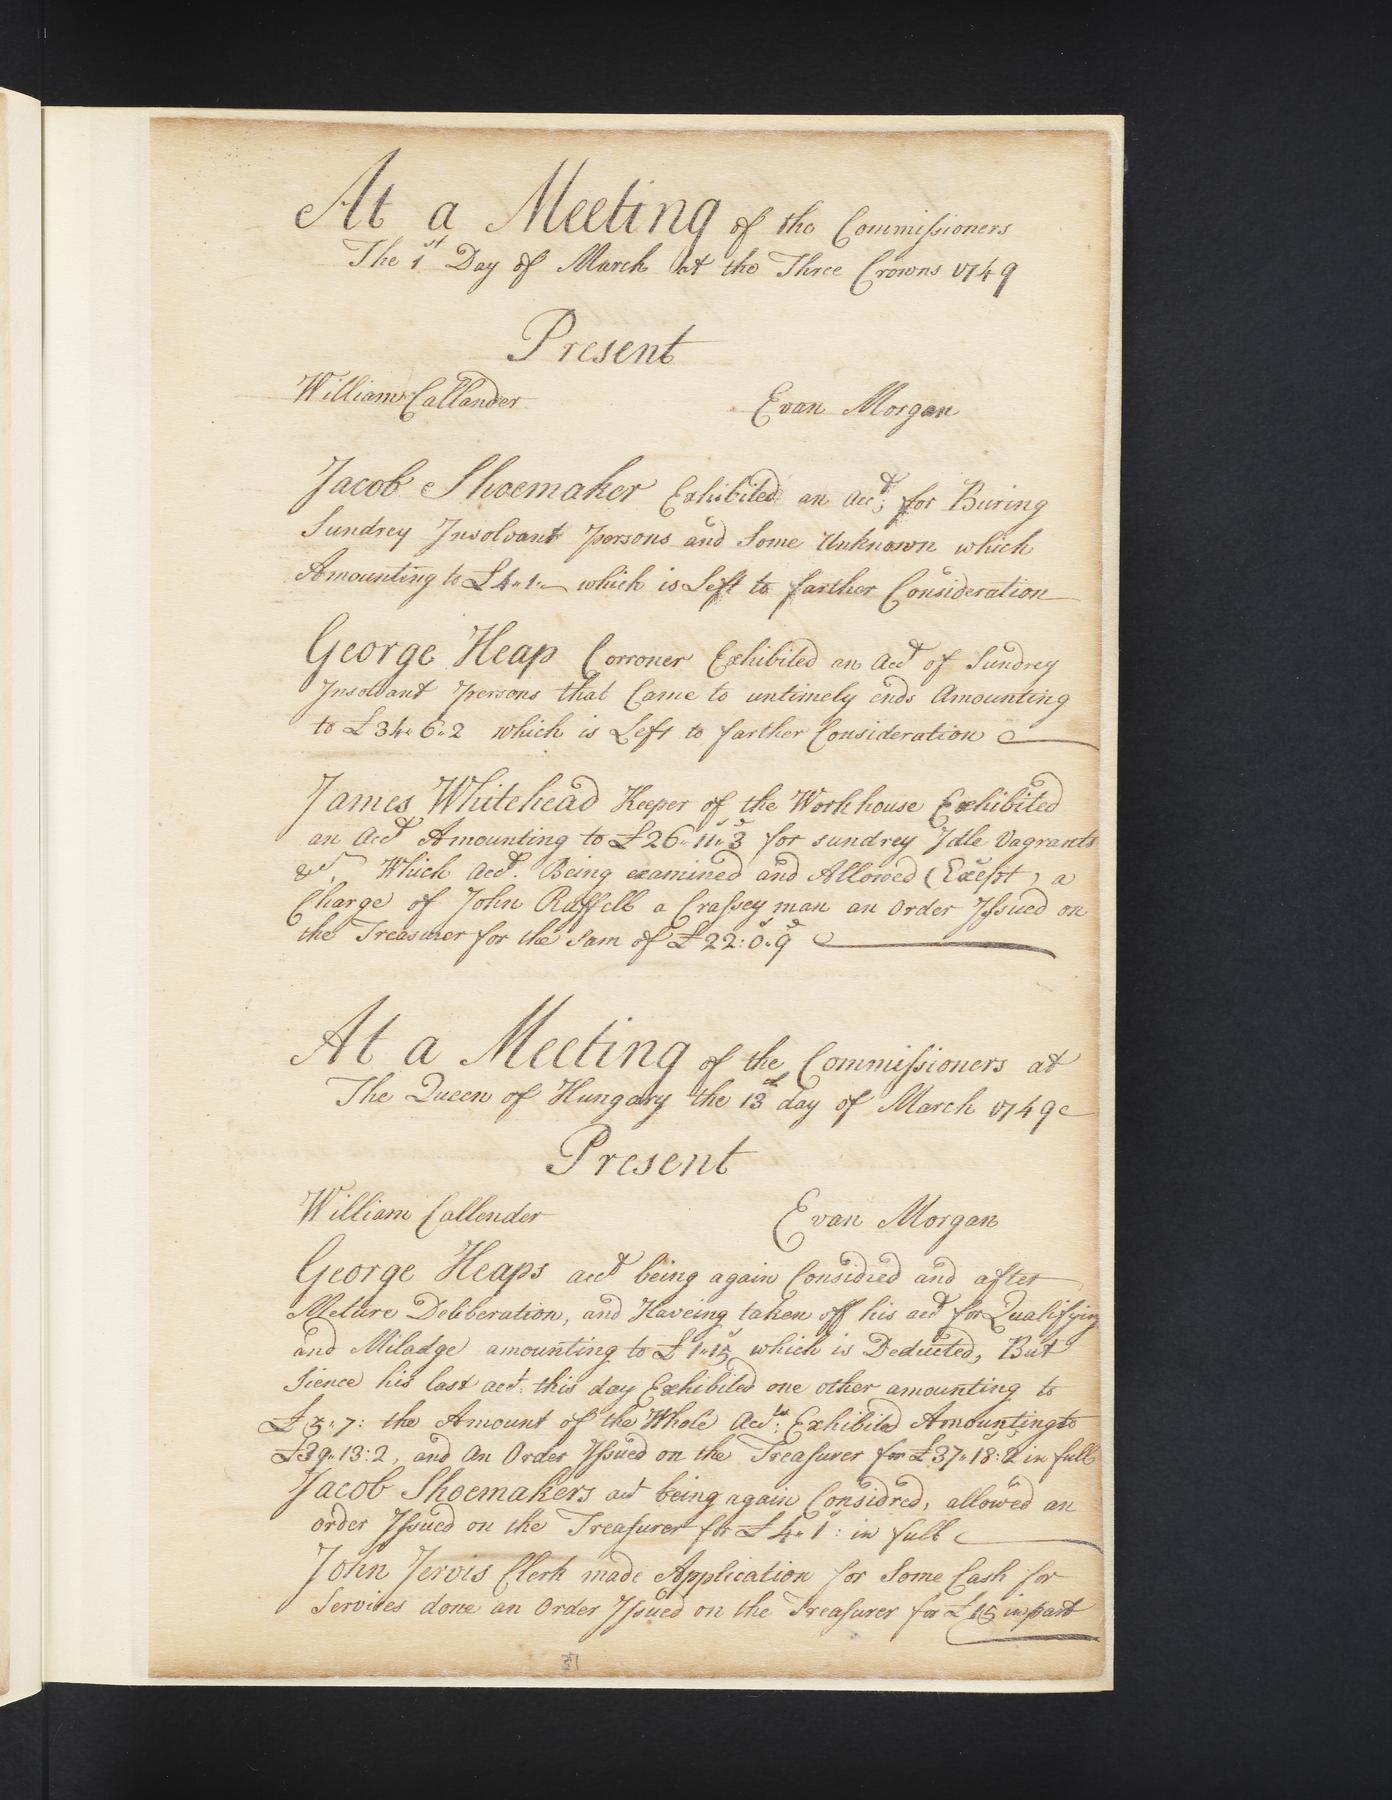 At a Meeting of the Commissioners
The 1st Day of March at the Three Crowns 1749
Present
William Callander Evan Morgan
Jacob Shoemaker Exhibited an acct; for Buring
Sundrey Insolvant persons and Some Unknown which
Amounting to £4"1"- which is Left to farther Consideration
George Heap Corroner Exhibited an Acct of Sundrey
Insolvant persons that Came to untimely ends Amounting
to £34"6"2 which is Left to farther Consideration
James Whitehead Keeper of the Workhouse Exhibited
an Acct Amounting to £26"11s"3d for sundrey Idle Vagrants
&c. Which acct. Being examined and Allowed (Except) a
Charge of John Raffell a Crassey man an Order Issued on
the Treasurer for the Sum of £22:0s"9d
At a Meeting of the Commissioners at
The Queen of Hungary the 13th day of March 1749
Present
William Callender Evan Morgan
George Heaps acct being again Considred and after
Meture Deliberation, and Haveing taken off his acct for Qualifying
and Miladge amounting to £1"15s which is Deducted, But
Sience his last acct. this day Exhibited one other amounting to
£5"7: the Amount of the Whole Accts: Exhibited Amounting to
£39"13:2, and an Order Issued on the Treasurer for £37"18s:2d in full
Jacob Shoemakers act being again Considred, allowed an
order Issued on the Treasurer for £4"1s: in full
John Jervis Clerk made Application for Some Cash for
Services done an Order Issued on the Treasurer for £15 in part
31